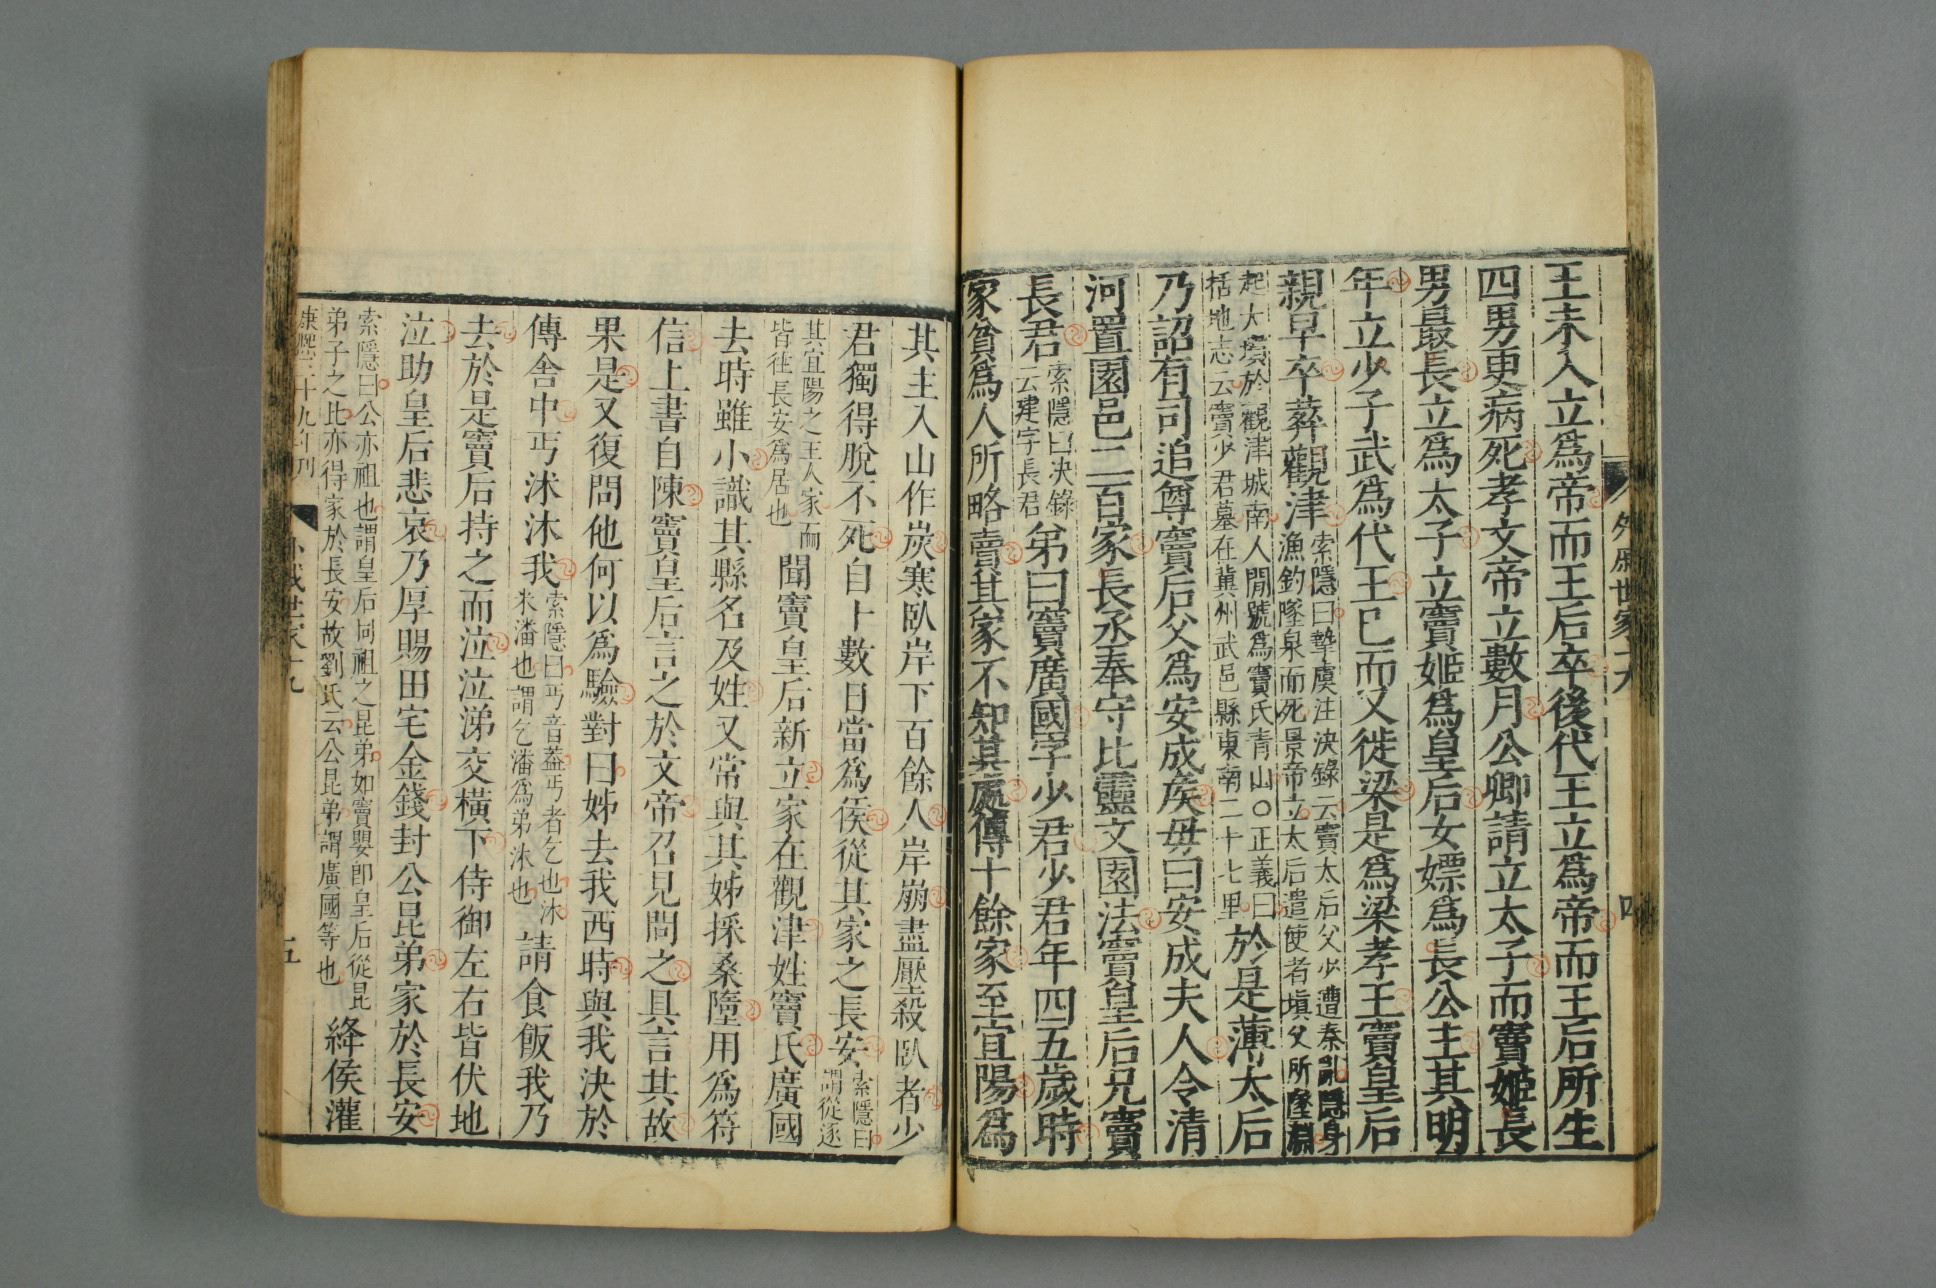 王未入立爲帝而王后卒後代王立爲帝而王后所生
四男更病死孝文帝立數月公卿請立太子而竇姬長
男最長立爲太子立竇姬爲皇后女嫖爲長公主其明
年立少子武爲代王已而又徙梁是爲梁孝王竇皇后
親早卒葬觀津索隱曰摯虞注決錄云竇太后父少遭秦亂隱身
漁釣墜泉而死景帝立太后遣使者塡父所墜淵
起大墳於觀津城南人間號爲竇氏青山〇正義曰
括地志云竇少君墓在冀州武邑縣東南二十七里於是薄太后
乃詔有司追尊竇后父爲安成侯母曰安成夫人令清
河置園邑二百家長丞奉守比靈文園法竇皇后兄竇
長君索隱曰決錄
云建字長君弟曰竇廣國字少君少君年四五歲時
家貧爲人所略賣其家不知其處傳十餘家至宜陽爲
外戚世家十九
四
其主入山作炭寒臥岸下百餘人岸崩盡壓殺臥者少
君獨得脫不死自卜數日當爲侯從其家之長安索隱曰
謂從逐
其宜陽之主人家而
皆往長安爲居也聞竇皇后新立家在觀津姓竇氏廣國
去時雖小識其縣名及姓又常與其姊採桑墮用爲符
信上書自陳竇皇后言之於文帝召見問之具言其故
果是又復問他何以爲驗對曰姊去我西時與我決於
傳舍中丐沐沐我索隱曰丐音蓋丐者乞也沐
米潘也謂乞潘爲弟沐也請食飯我乃
去於是竇后持之而泣泣涕交橫下侍御左右皆伏地
泣助皇后悲哀乃厚賜田宅金錢封公昆弟家於長安
索隱曰公亦祖也謂皇后同祖之昆弟如竇嬰卽皇后從昆
弟子之比亦得家於長安故劉氏云公昆弟謂廣國等也絳侯灌
康熙三十九年刊
外戚世家十九
五